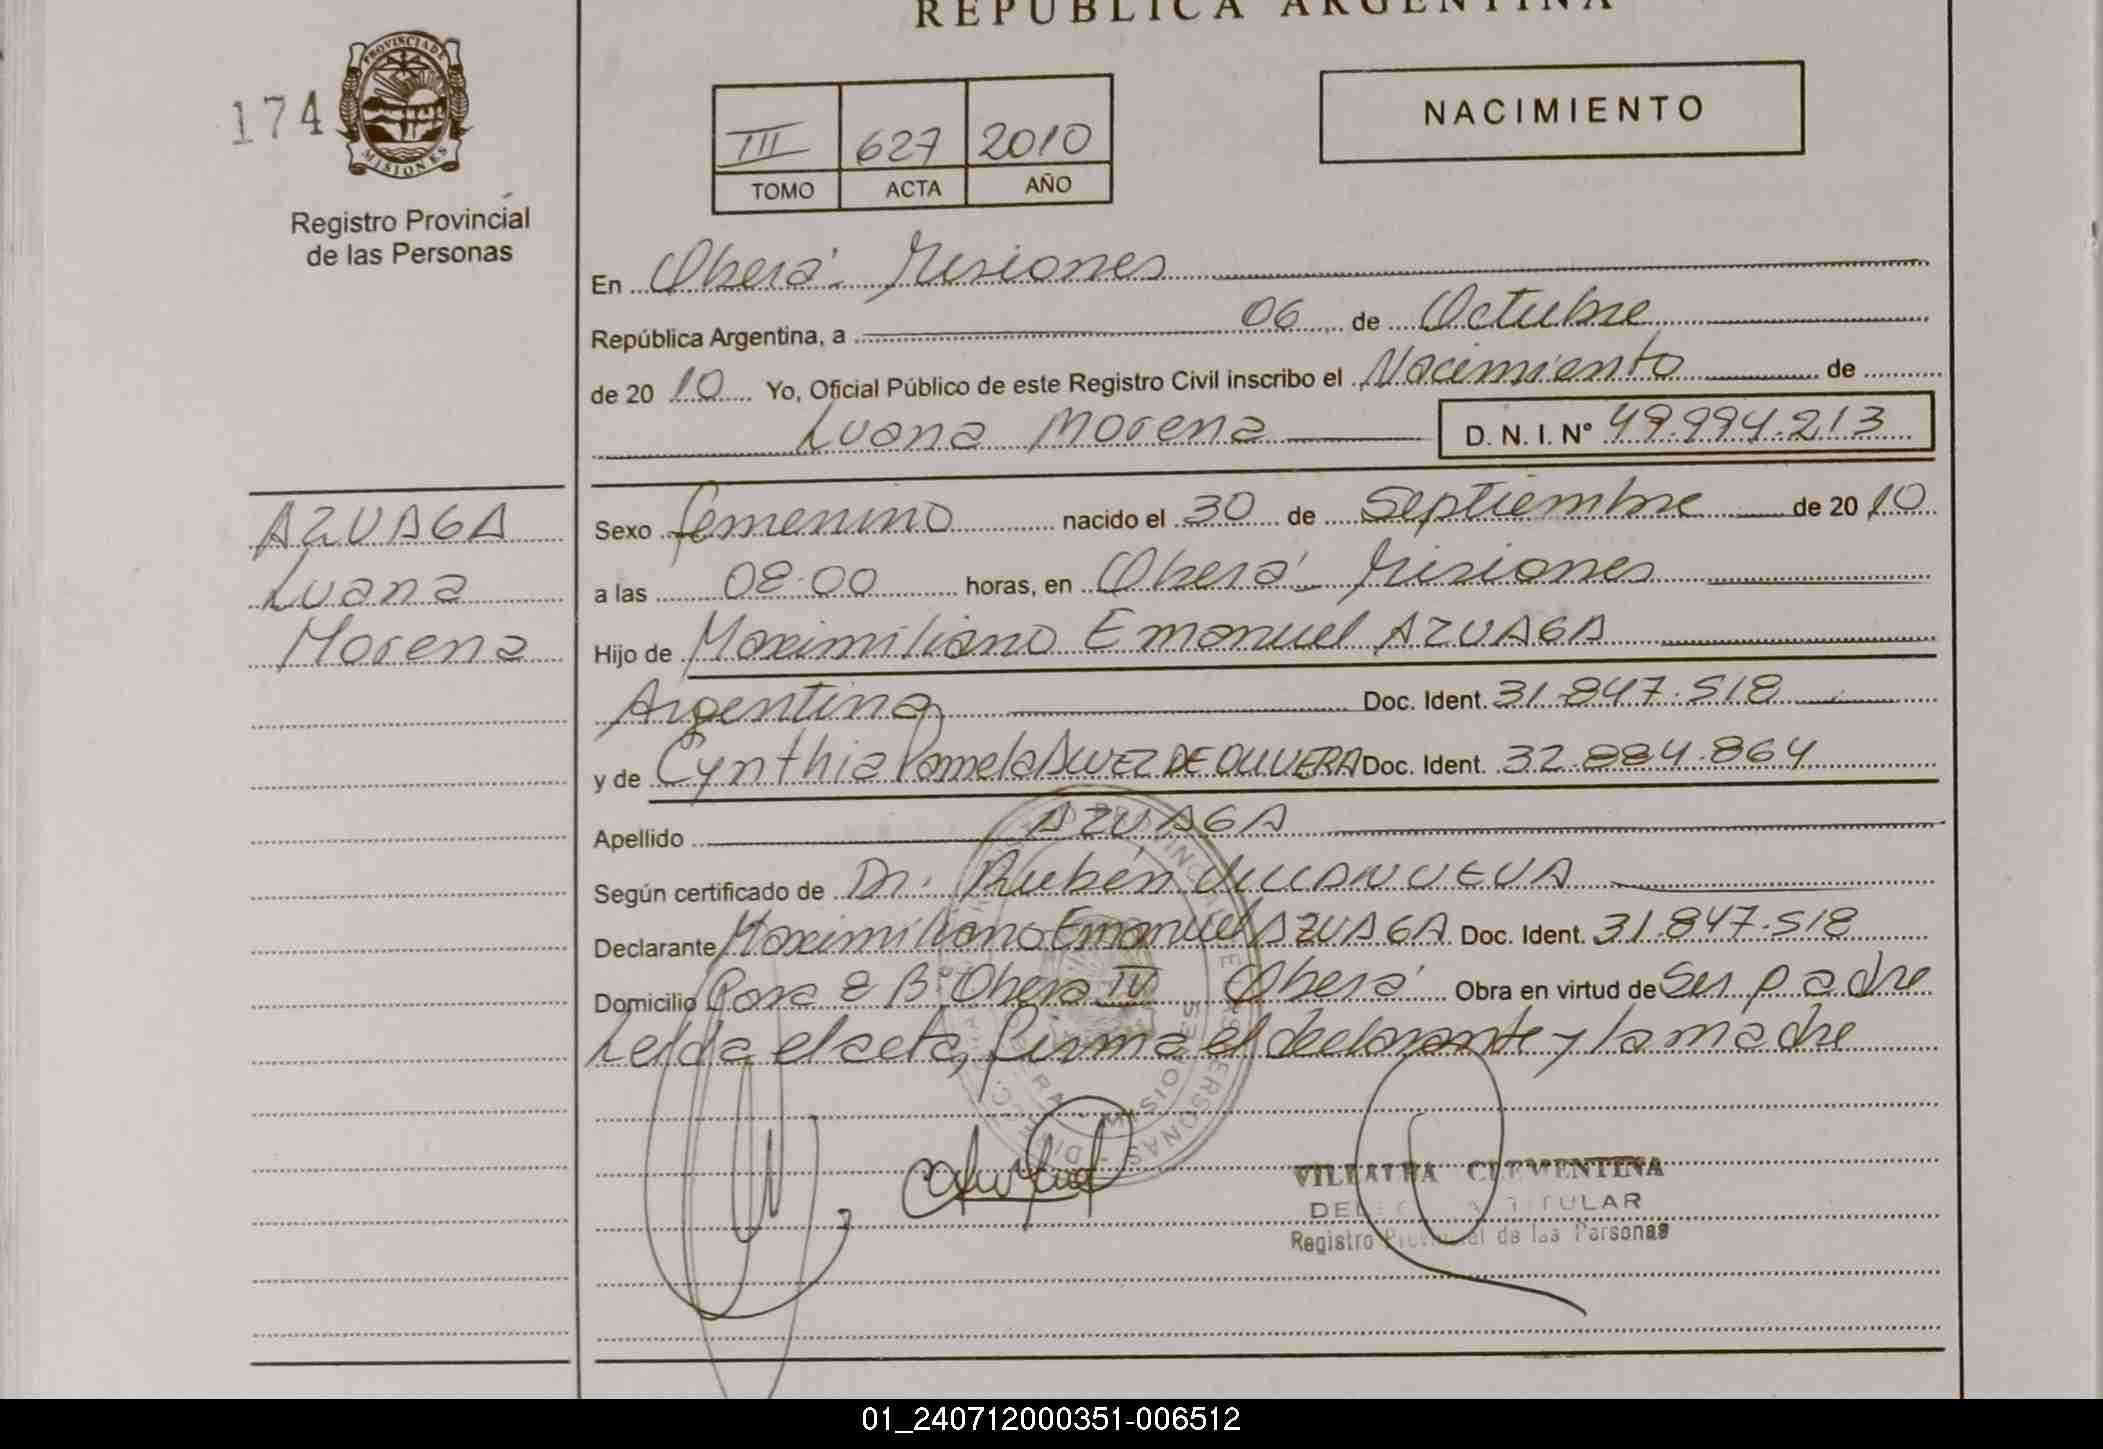 REPUBLICA ARGENTINA
174
PROVINCIA DE
MISIONES
Registro Provincial
de las Personas
III 627 2010
TOMO ACTA AÑO
NACIMIENTO
En Oberá - Misiones
República Argentina, a 06 de Octubre
de 2010 Yo, Oficial Público de este Registro Civil inscribo el Nacimiento de
Luana Morena D. N. I. Nº 49.994.213
AZUAGA
Luana
Morena
Sexo femenino nacido el 30 de Septiembre de 2010
a las 08:00 horas, en Oberá - Misiones
Hijo de Maximiliano Emanuel AZUAGA
Argentina Doc. Ident. 31.847.518
y de Cynthia Pamela ALVEZ DE OLIVERA Doc. Ident. 32.884.864
Apellido AZUAGA
Según certificado de Dr. Rubén VILLANUEVA
Declarante Maximiliano Emanuel AZUAGA Doc. Ident. 31.847.518
Domicilio 8 Bº Oberá IV Oberá Obra en virtud de ser padre
Leída el acta, firma el declarante y la madre
VILLALBA CLEMENTINA
TITULAR
Registro Provincial de las Personas
01_240712000351-006512